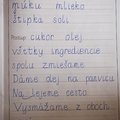 múku mlieko
štipka soli
Postup cukor olej
všetky ingrediencie
spolu zmiešame
Dáme olej na panvicu
Na lejeme cesto
Vysmážame z oboch